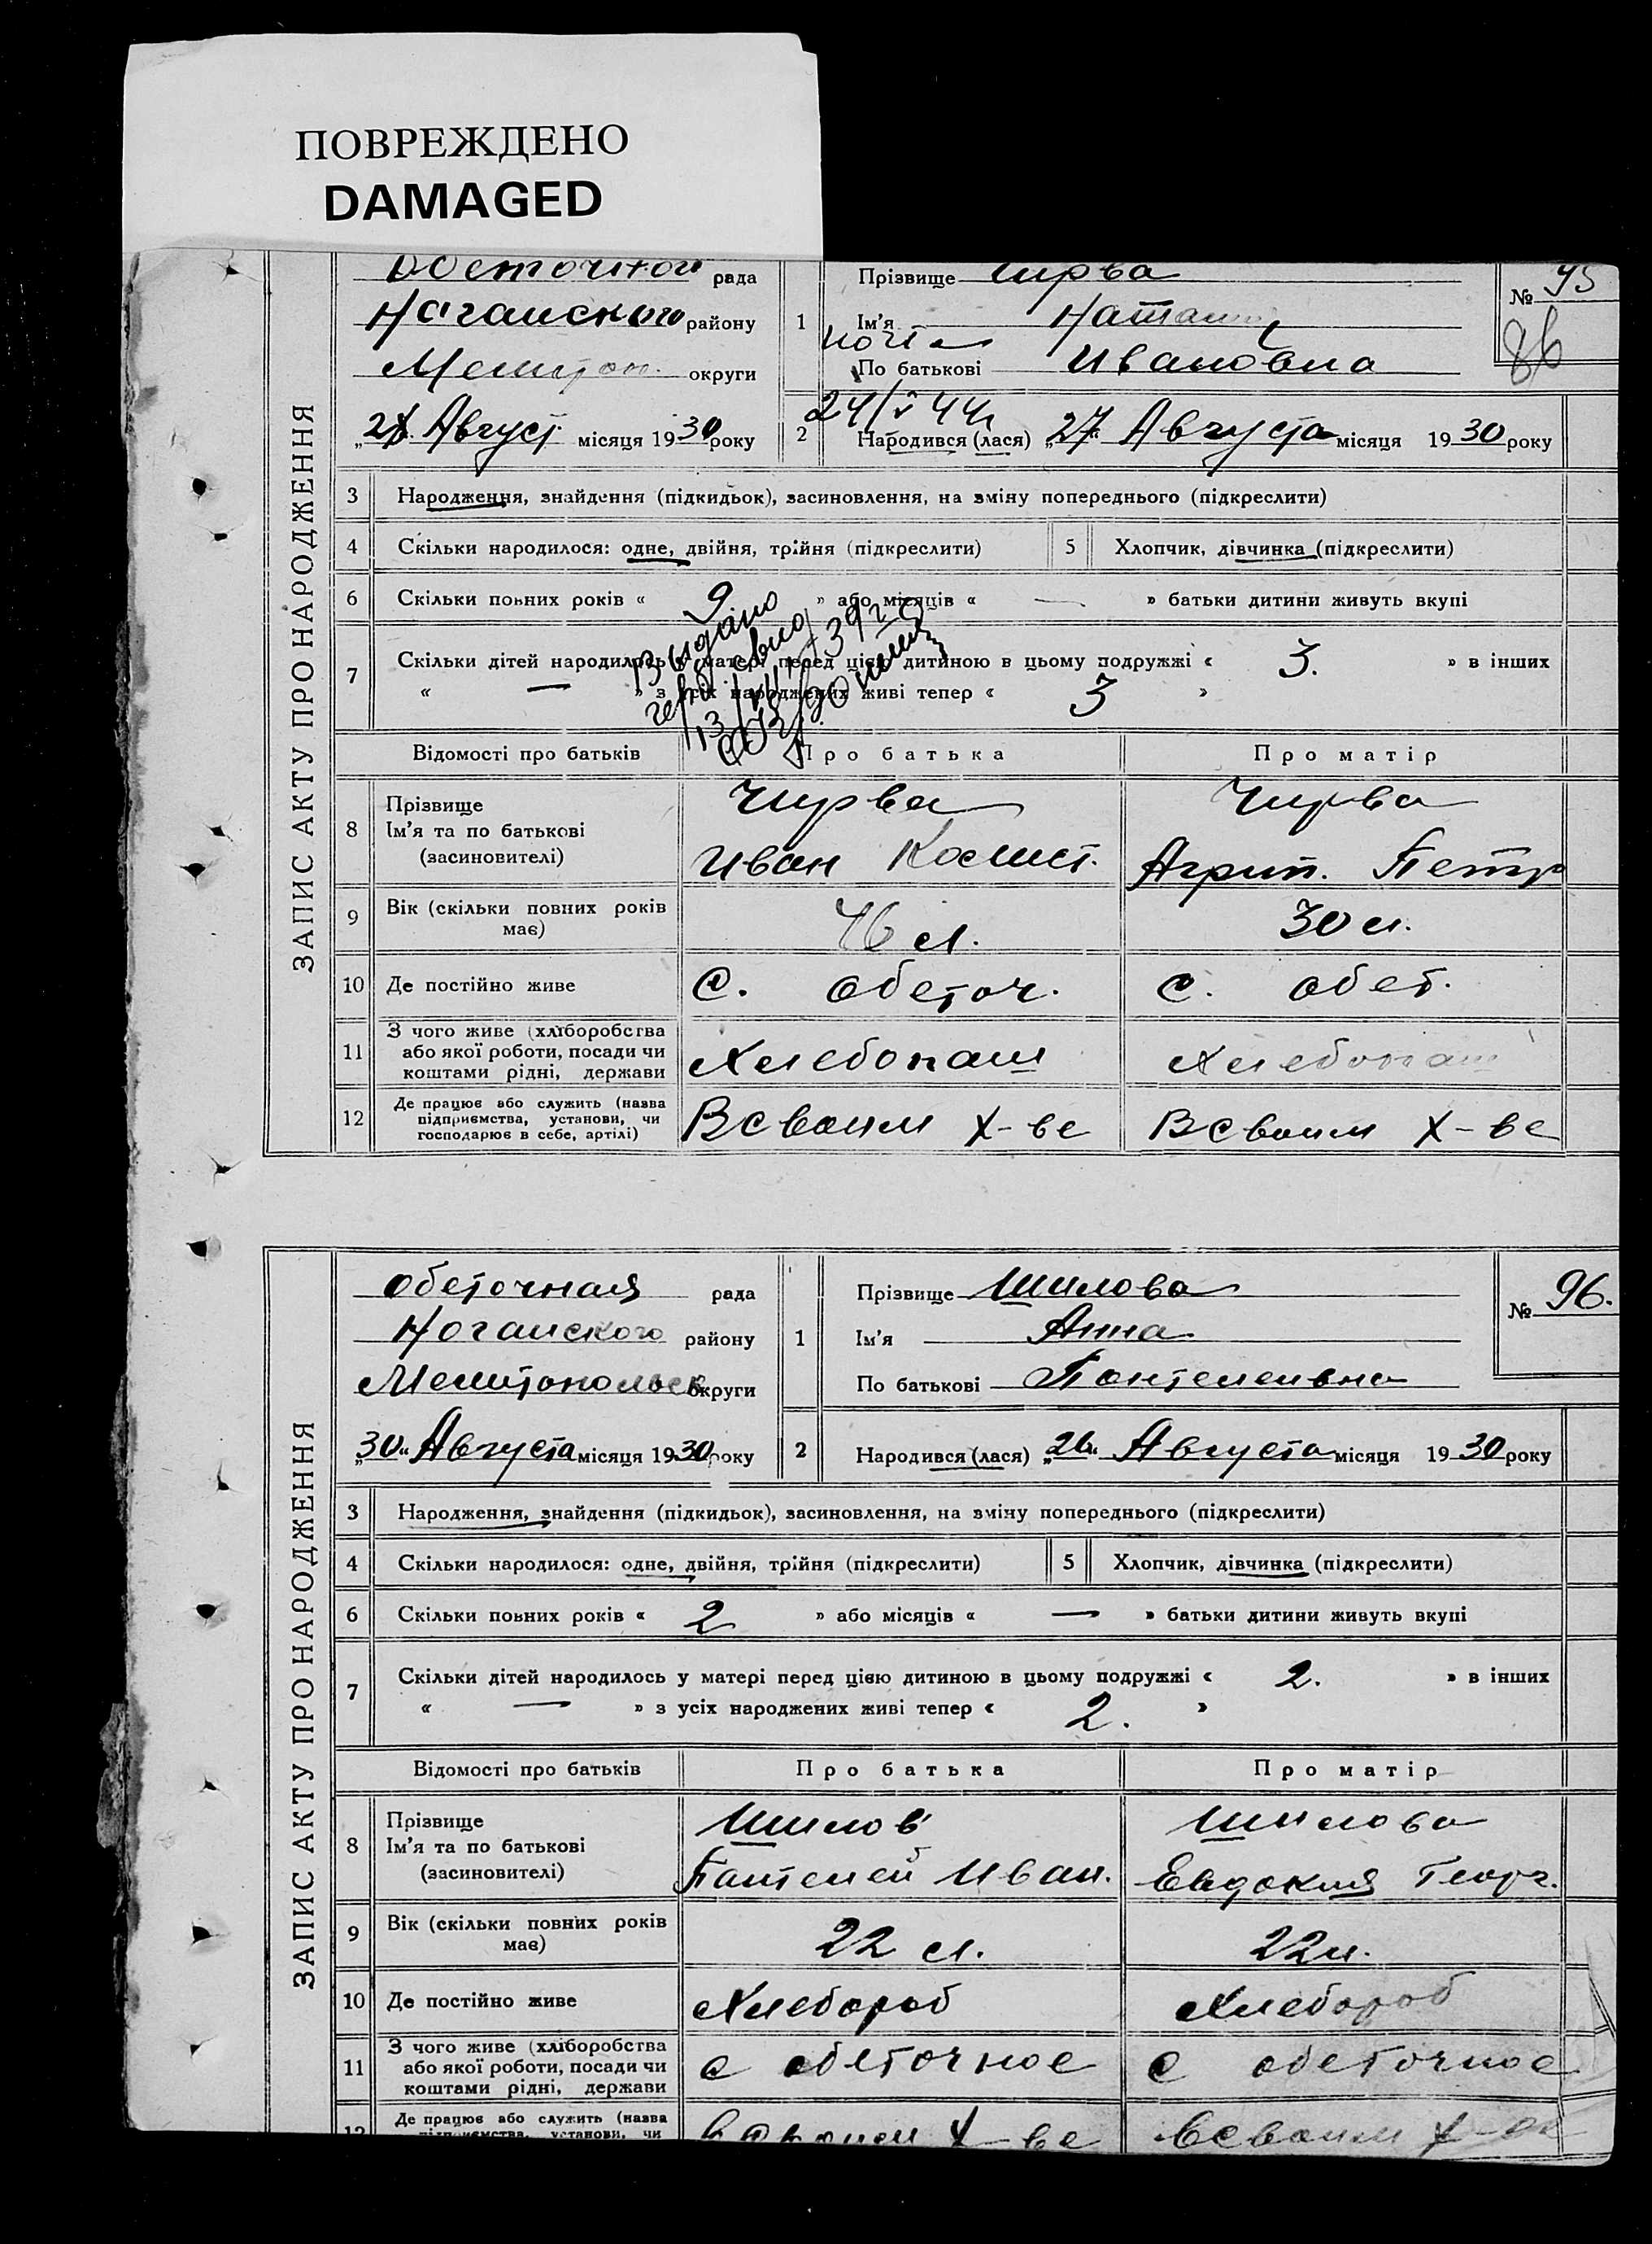 ПОВРЕЖДЕНО
DAMAGED
ЗАПИС АКТУ ПРО НАРОДЖЕННЯ
рада
Ногайского району
Мелитоп. округи
Август. місяця 1930 року
№ 95
86
1 Прізвище Чирва
Ім'я
По батькові Ивановна
2 Народився (лася) „27" Августа місяця 1930 року
3 Народження, знайдення (підкидьок), засиновлення, на зміну попереднього (підкреслити)
4 Скільки народилося: одне, двійня, трійня (підкреслити) 5 Хлопчик, дівчинка (підкреслити)
6 Скільки повних років « 9 » або місяців « — » батьки дитини живуть вкупі
7 Скільки дітей народилось у матері перед цією дитиною в цьому подружжі « 3. » в інших
« — » з усіх народжених живі тепер « 3 »
Выдано
Відомості про батьків Про батька Про матір
8 Прізвище Ім'я та по батькові (засиновителі)
Чирва Чирва
Иван Агрип. Петр
9 Вік (скільки повних років має) 30 л.
10 Де постійно живе С. Обеточ. С. Обет.
11 З чого живе (хліборобства або якої роботи, посади чи коштами рідні, держави Хлебопаш Хлебопаш
12 Де працює або служить (назва підприємства, установи, чи господарює в себе, артілі) В своим х-ве В своим х-ве
ЗАПИС АКТУ ПРО НАРОДЖЕННЯ
Обеточная рада
Ногайского району
Мелитопольск округи
„30" Августа місяця 1930 року
№ 96.
1 Прізвище Шилова
Ім'я Анна
По батькові Пантелеивна
2 Народився (лася) „26" Августа місяця 1930 року
3 Народження, знайдення (підкидьок), засиновлення, на зміну попереднього (підкреслити)
4 Скільки народилося: одне, двійня, трійня (підкреслити) 5 Хлопчик, дівчинка (підкреслити)
6 Скільки повних років « 2 » або місяців « — » батьки дитини живуть вкупі
7 Скільки дітей народилось у матері перед цією дитиною в цьому подружжі « 2. » в інших
« — » з усіх народжених живі тепер « 2. »
Відомості про батьків Про батька Про матір
8 Прізвище Ім'я та по батькові (засиновителі)
Шилов Шилова
Пантелей Иван. Евдокия Георг.
9 Вік (скільки повних років має) 22 л. 22 л.
10 Де постійно живе Хлебороб Хлебороб
11 З чого живе (хліборобства або якої роботи, посади чи коштами рідні, держави с Обеточное с Обеточное
12 Де працює або служить (назва підприємства, установи, чи в своим х-ве в своим х-ве